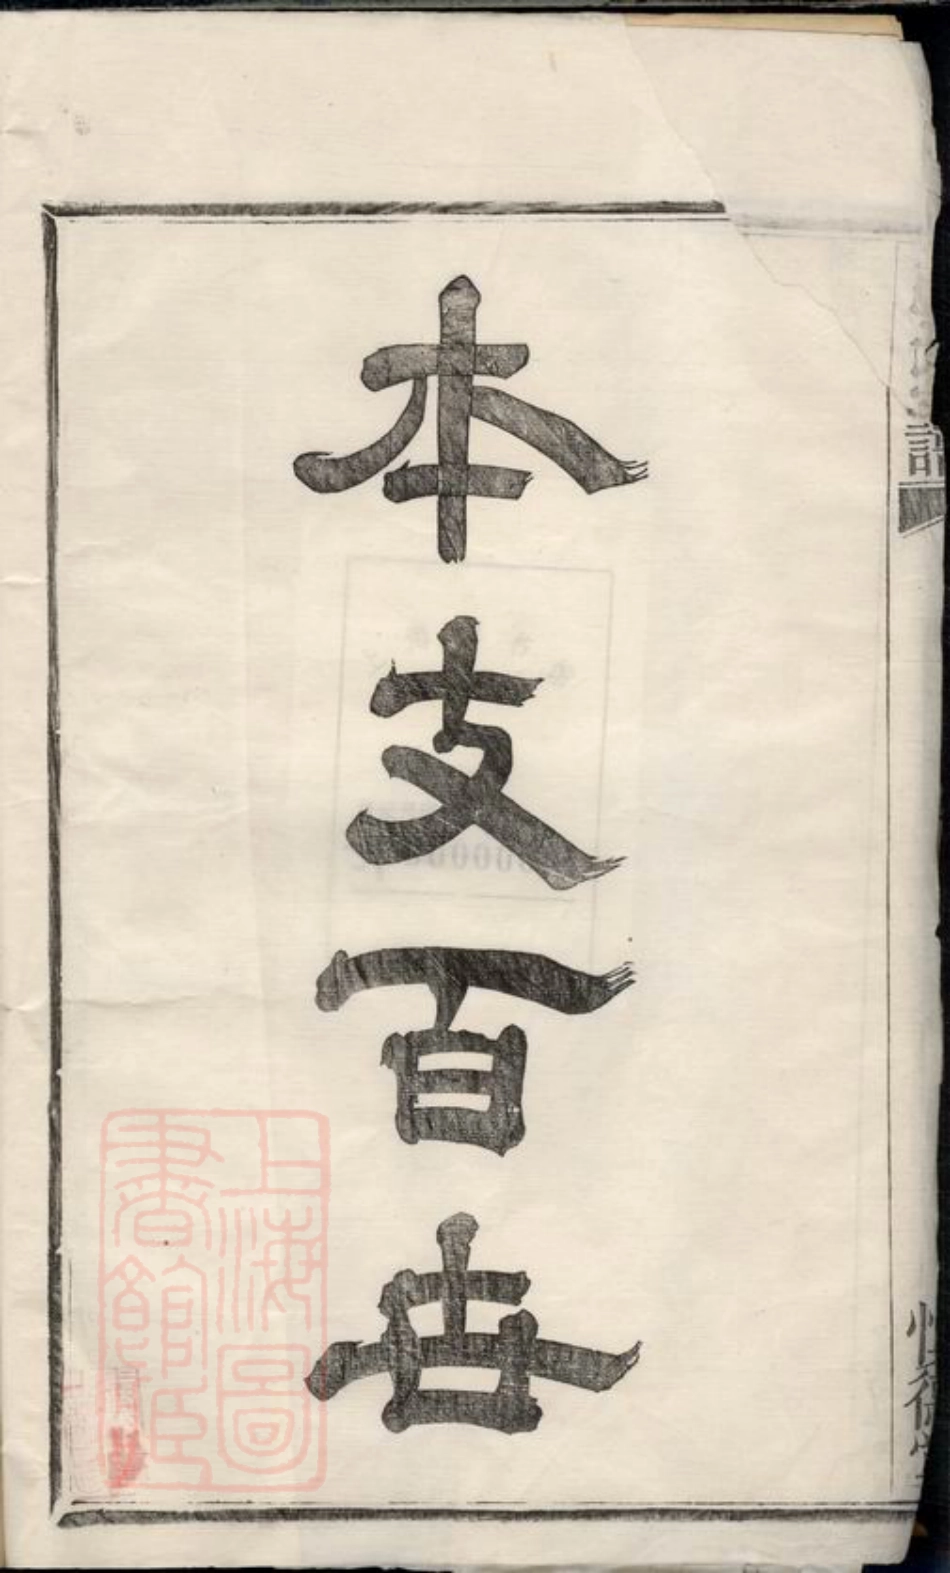 本支百世
上海圖
書館藏
譜